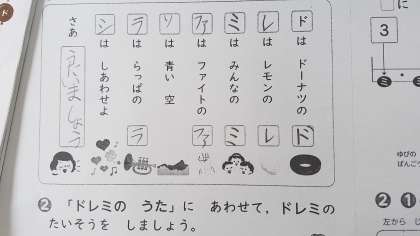 ドは ドーナツの ド
レは レモンの レ
ミは みんなの ミ
ファは ファイトの ファ
ソは 青い 空
ラは らっぱの ラ
シは しあわせよ
さあ うたいましょう
❷ 「ドレミの うた」に あわせて，ドレミの
たいそうを しましょう。
に
3
ミ
ゆびの
ばんごう
❷ ❶
左から
ド